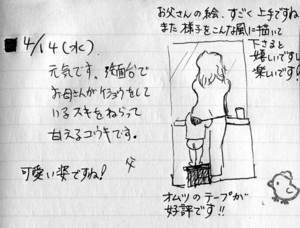 4/14(水)
元気です。洗面台で
お母さんがケショウをして
いるスキをねらって
甘えるコウキです。
父
可愛い姿ですね!
お父さんの絵、すごく上手ですね
また様子をこんな風に描いて
下さると
嬉しいですし
楽しいです!
オムツのテープが
好評です!!